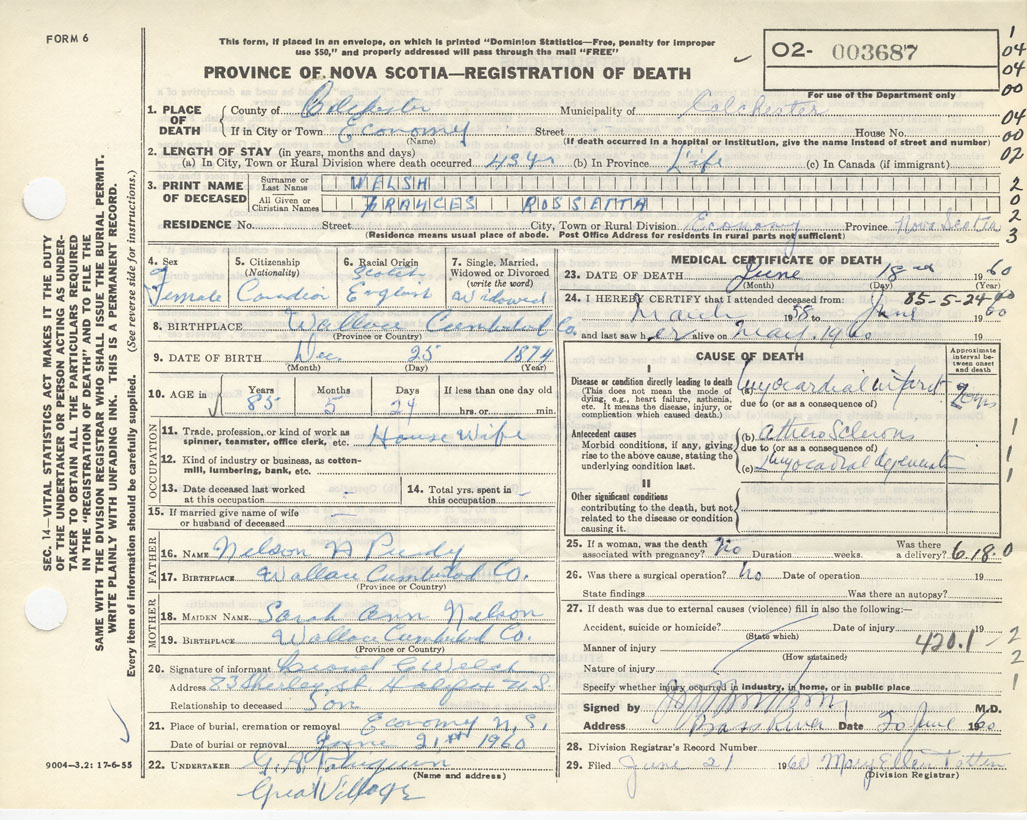 FORM 6
This form, if placed in an envelope, on which is printed "Dominion Statistics—Free, penalty for improper
use $50," and properly addressed will pass through the mail "FREE"
O2- 003687
For use of the Department only
PROVINCE OF NOVA SCOTIA—REGISTRATION OF DEATH
1. PLACE OF DEATH { County of Colchester Municipality of Colchester
If in City or Town Economy Street House No.
(Name) (If death occurred in a hospital or institution, give the name instead of street and number)
2. LENGTH OF STAY (in years, months and days)
(a) In City, Town or Rural Division where death occurred 43 yrs (b) In Province Life (c) In Canada (if immigrant)
3. PRINT NAME OF DECEASED
Surname or Last Name WALSH
All Given or Christian Names FRANCES ROSSETTA
RESIDENCE No. Street City, Town or Rural Division Economy Province Nova Scotia
(Residence means usual place of abode. Post Office Address for residents in rural parts not sufficient)
4. Sex Female
5. Citizenship (Nationality) Canadian
6. Racial Origin Scotch English
7. Single, Married, Widowed or Divorced (write the word) Widowed
8. BIRTHPLACE Wallace Cumberland Co.
(Province or Country)
9. DATE OF BIRTH Dec 25 1874
(Month) (Day) (Year)
10. AGE in Years 85 Months 5 Days 24 If less than one day old hrs. or min.
OCCUPATION
11. Trade, profession, or kind of work as spinner, teamster, office clerk, etc. House Wife
12. Kind of industry or business, as cotton-mill, lumbering, bank, etc.
13. Date deceased last worked at this occupation –
14. Total yrs. spent in this occupation –
15. If married give name of wife or husband of deceased –
FATHER
16. NAME Nelson A Purdy
17. BIRTHPLACE Wallace Cumberland Co.
(Province or Country)
MOTHER
18. MAIDEN NAME Sarah Ann Nelson
19. BIRTHPLACE Wallace Cumberland Co.
(Province or Country)
20. Signature of informant
Address 83 Shirley St. Halifax N.S.
Relationship to deceased Son
21. Place of burial, cremation or removal Economy N.S.
Date of burial or removal June 21st 1960
22. UNDERTAKER
(Name and address)
Great Village
MEDICAL CERTIFICATE OF DEATH
23. DATE OF DEATH June 18 1960
(Month) (Day) (Year)
85-5-24
24. I HEREBY CERTIFY that I attended deceased from:
March 1958 to June 1960
and last saw her alive on May 1960
CAUSE OF DEATH
Approximate interval between onset and death
I
Disease or condition directly leading to death (This does not mean the mode of dying, e.g., heart failure, asthenia, etc. It means the disease, injury, or complication which caused death.)
(a) Myocardial infarct. 2 yrs
due to (or as a consequence of)
Antecedent causes
Morbid conditions, if any, giving rise to the above cause, stating the underlying condition last.
(b) atherosclerosis
due to (or as a consequence of)
(c) myocardial degenerat
II
Other significant conditions contributing to the death, but not related to the disease or condition causing it.
25. If a woman, was the death associated with pregnancy? No Duration weeks. Was there a delivery? 6.18.0
26. Was there a surgical operation? No Date of operation 19
State findings Was there an autopsy?
27. If death was due to external causes (violence) fill in also the following:—
Accident, suicide or homicide? Date of injury 19
(State which)
Manner of injury 420.1
(How sustained)
Nature of injury
Specify whether injury occurred in industry, in home, or in public place
Signed by M.D.
Address Bass River Date 20 June 1960
28. Division Registrar's Record Number
29. Filed June 21 1960 Mary Ellen Totten
(Division Registrar)
1
04
04
00
04
00
02
2
0
2
3
1
1
1
2
2
1
SEC. 14—VITAL STATISTICS ACT MAKES IT THE DUTY
OF THE UNDERTAKER OR PERSON ACTING AS UNDER-
TAKER TO OBTAIN ALL THE PARTICULARS REQUIRED
IN THE "REGISTRATION OF DEATH" AND TO FILE THE
SAME WITH THE DIVISION REGISTRAR WHO SHALL ISSUE THE BURIAL PERMIT.
WRITE PLAINLY WITH UNFADING INK. THIS IS A PERMANENT RECORD.
Every item of information should be carefully supplied. (See reverse side for instructions.)
9004—3.2: 17-6-55